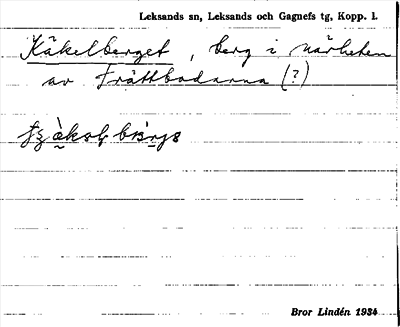 Leksands sn, Leksands och Gagnefs tg, Kopp. l.
Käkelberget, berg i närheten
av Fråttbodarna (?)
Bror Lindén 1934